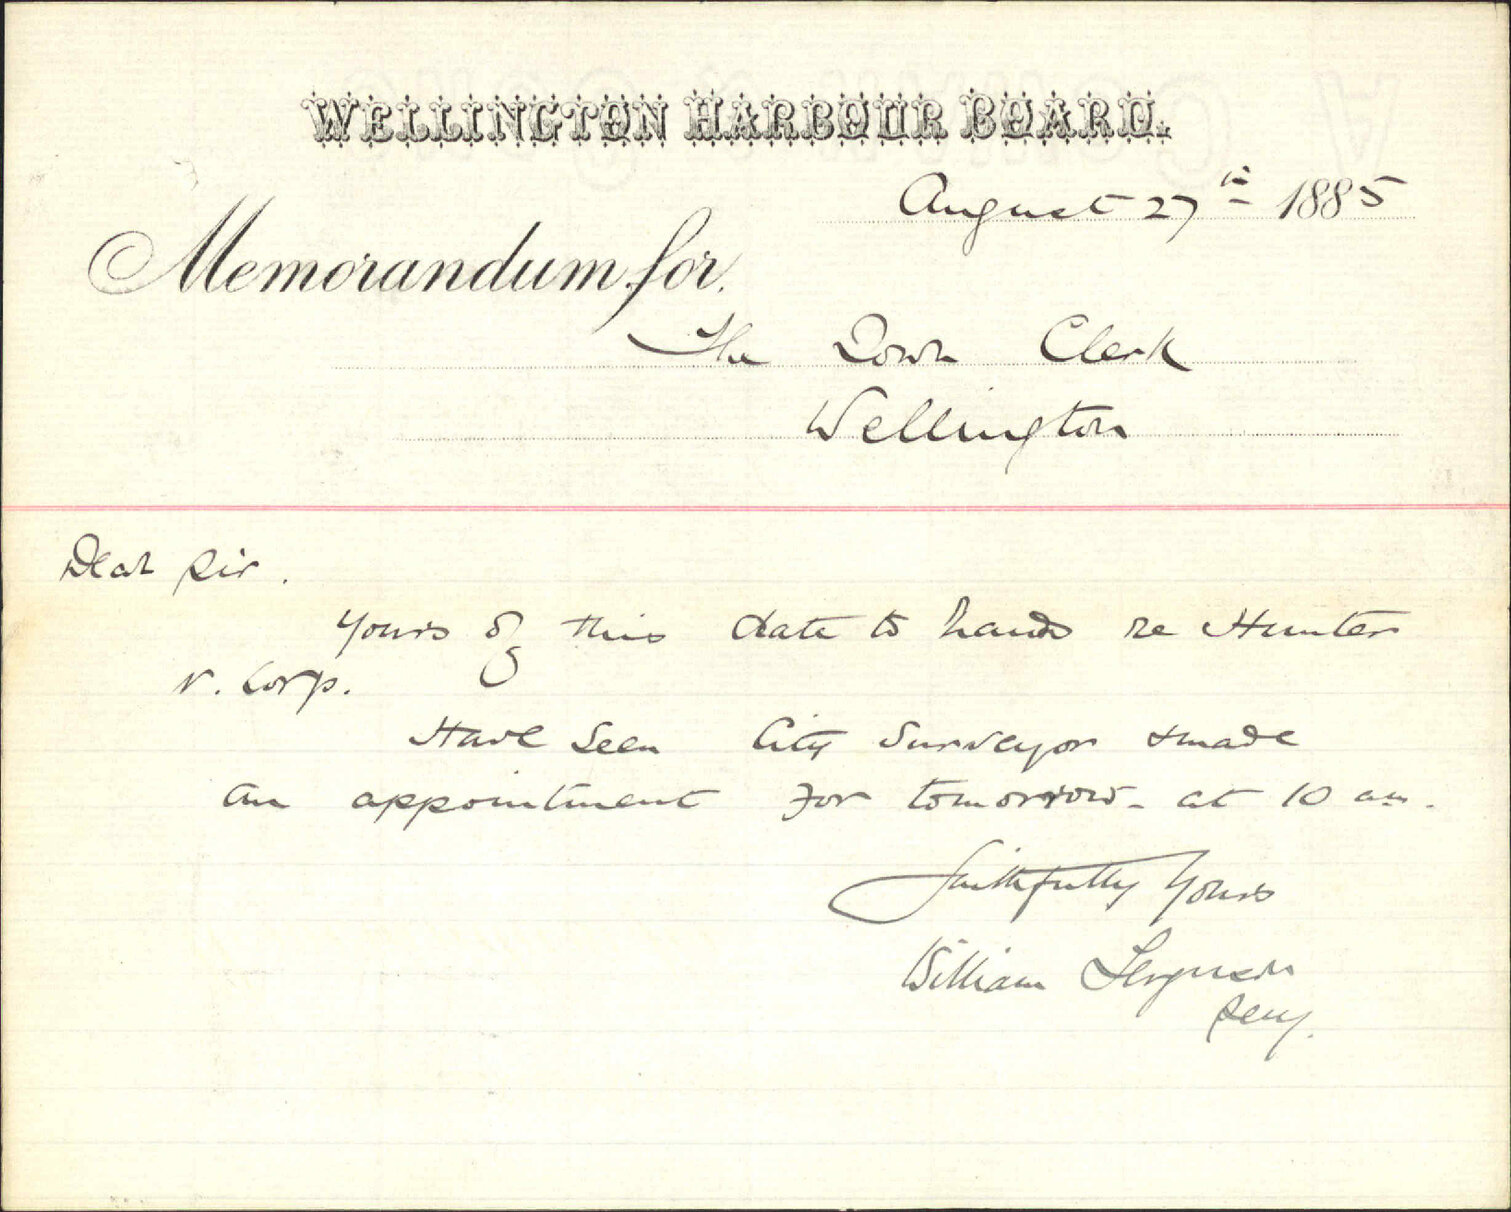 WELLINGTON HARBOUR BOARD.
August 27th 1885
Memorandum for
The Town Clerk
Wellington
Dear Sir.
Yours of this date to hand re Hunter
v. Corp.
Have seen City Surveyor & made
an appointment for tomorrow - at 10 am.
Faithfully Yours
William Ferguson
Secy.